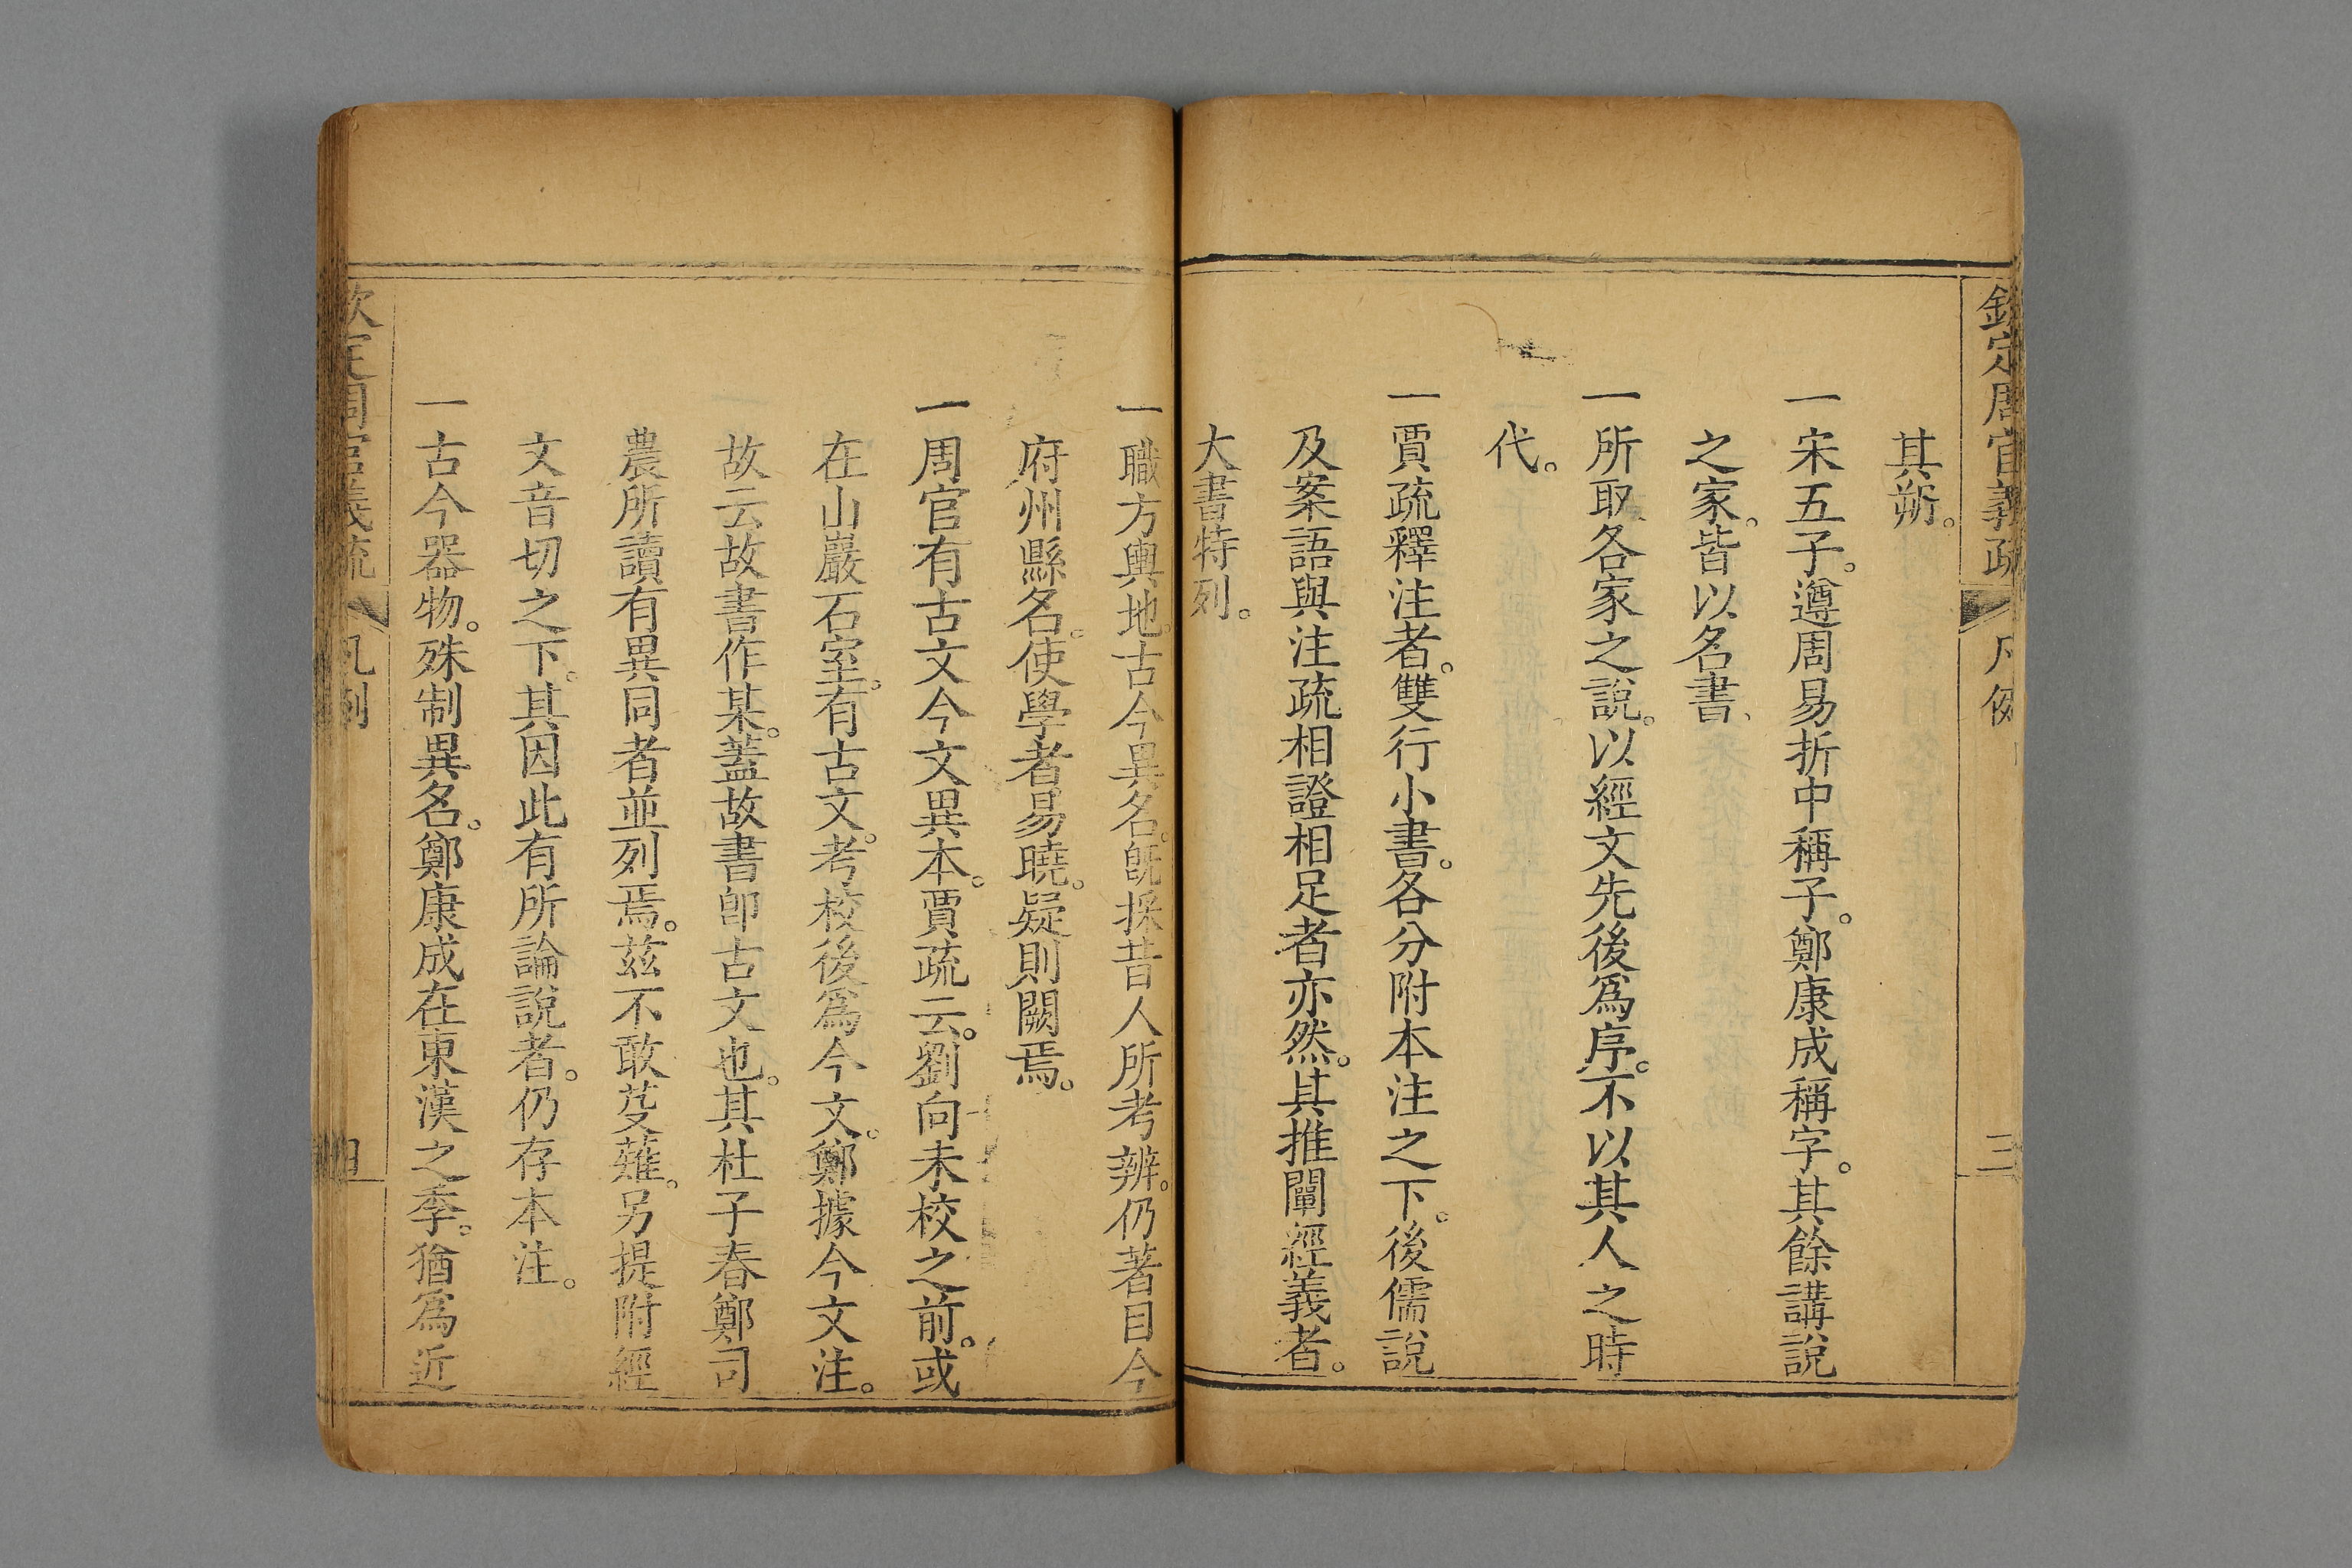 欽定周官義疏 凡例 三
其朔。
一宋五子。遵周易折中稱子。鄭康成稱字。其餘講說
之家。皆以名書、
一所取各家之說。以經文先後爲序。不以其人之時
代。
一賈疏釋注者。雙行小書。各分附本注之下。後儒說
及案語與注疏相證相足者亦然。其推闡經義者。
大書特列。
一職方輿地。古今異名。旣採昔人所考辨。仍著目今
府州縣名。使學者易曉。疑則闕焉。
一周官有古文今文異本。賈疏云。劉向未校之前。或
在山巖石室。有古文。考校後爲今文。鄭據今文注。
故云故書作某。蓋故書卽古文也。其杜子春鄭司
農所讀有異同者並列焉。茲不敢芟薙。另提附經
文音切之下。其因此有所論說者。仍存本注。
一古今器物。殊制異名。鄭康成在東漢之季。猶爲近
欽定周官義疏 凡例